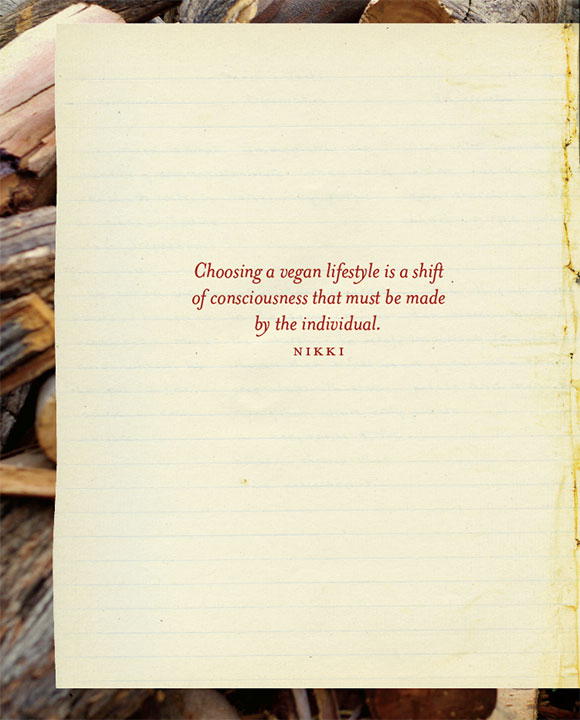 Choosing a vegan lifestyle is a shift
of consciousness that must be made
by the individual.
NIKKI